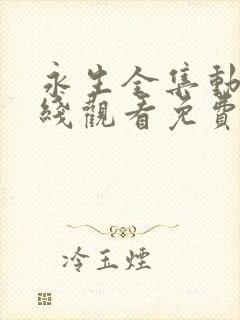 永生全集動
綫觀看免費
冷玉煙